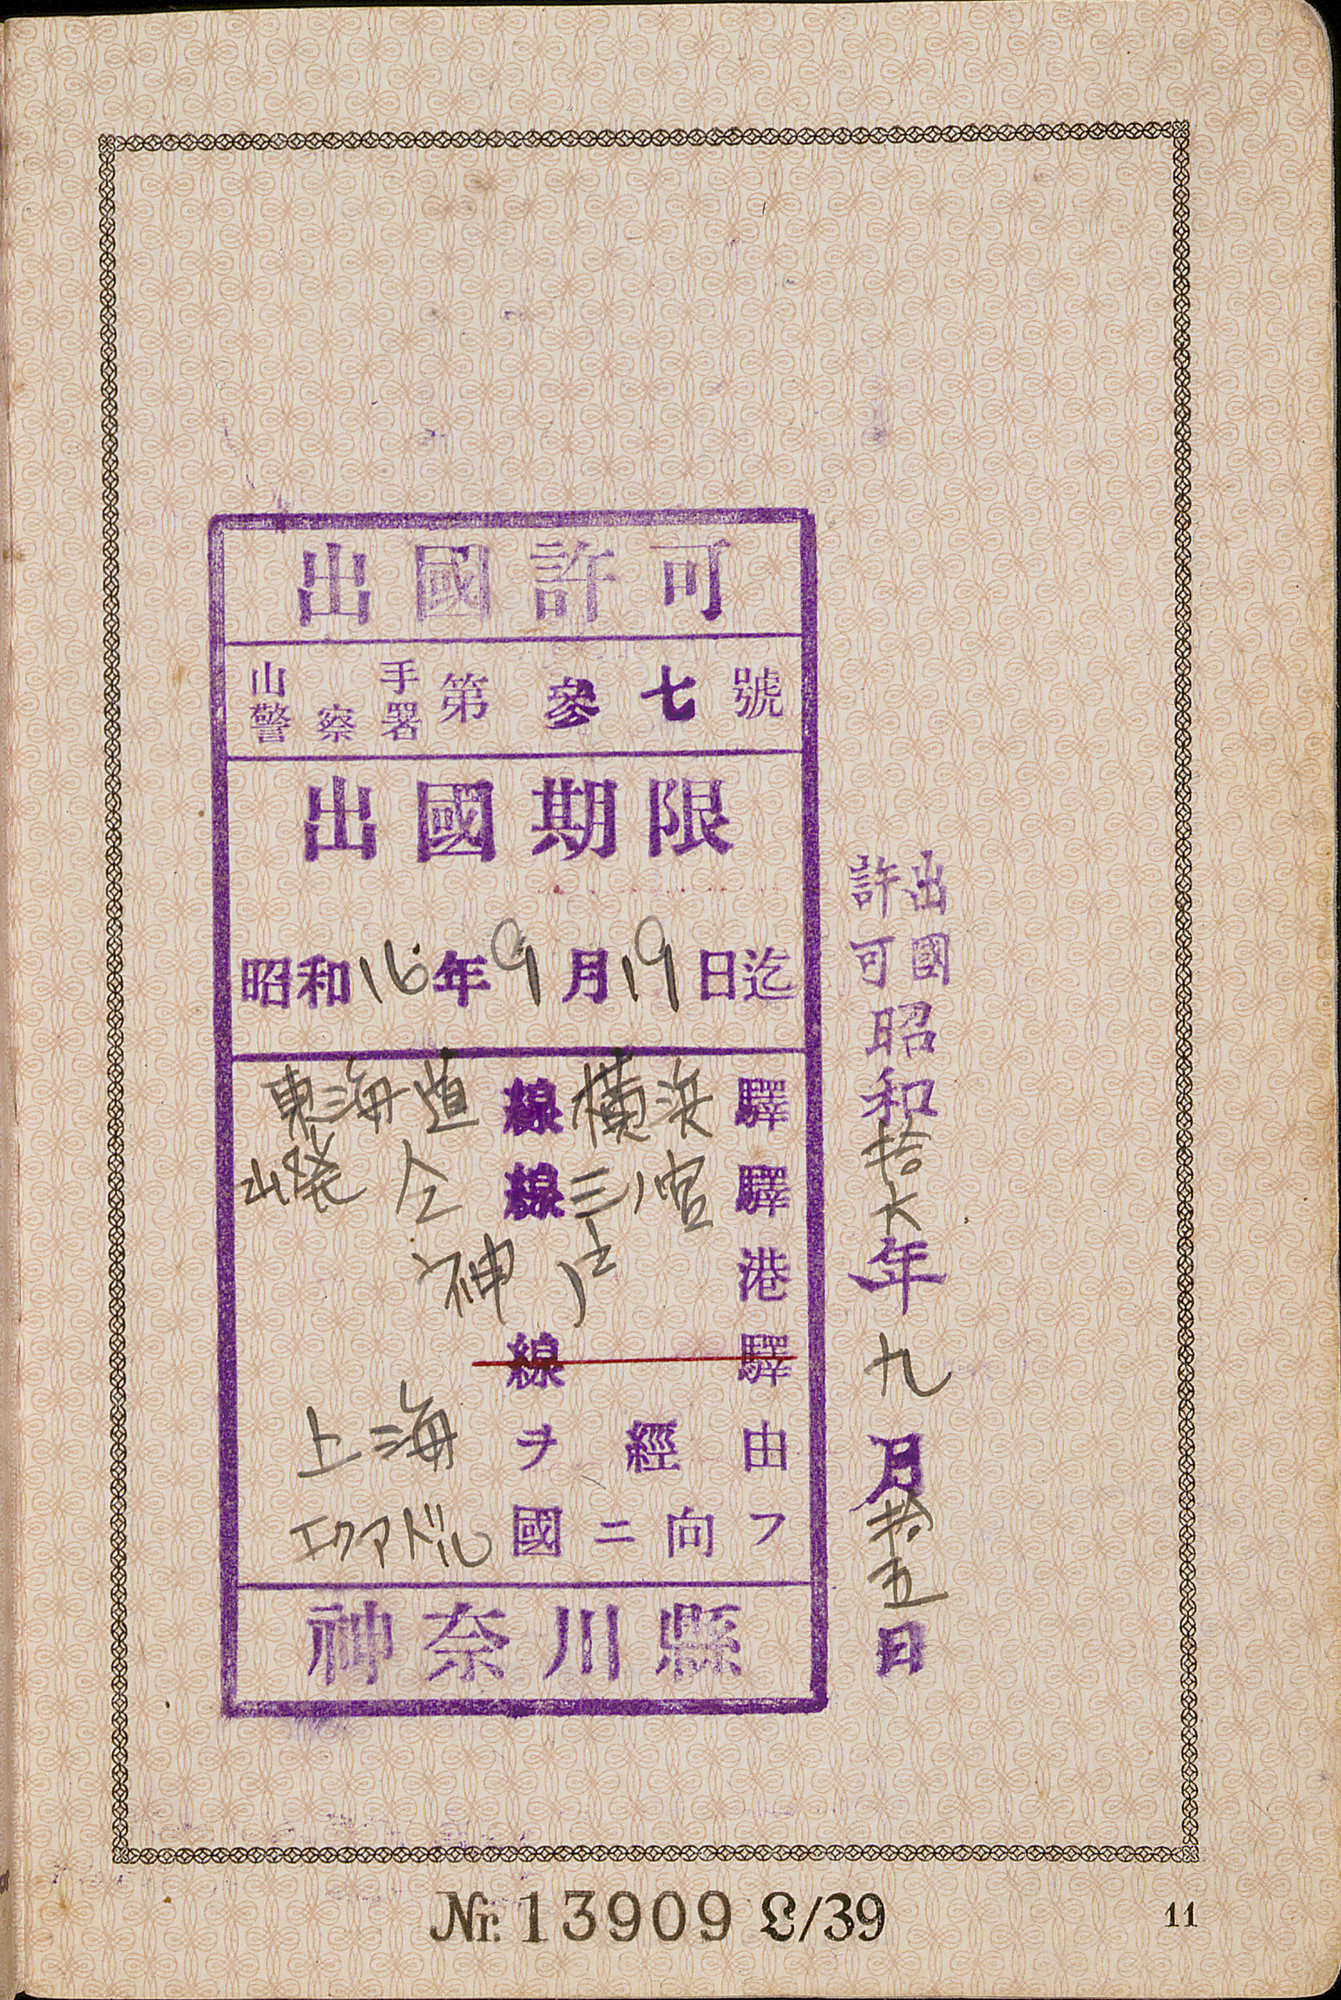 出國許可
山手警察署第參七號
出國期限
昭和16年9月19日迄
東海道線橫浜驛
出発仝線三ノ宮驛
神戸港
線驛
上海ヲ經由
エクアドル國ニ向フ
神奈川縣
出國許可昭和拾六年九月拾五日
Nr. 13909 L/39
11